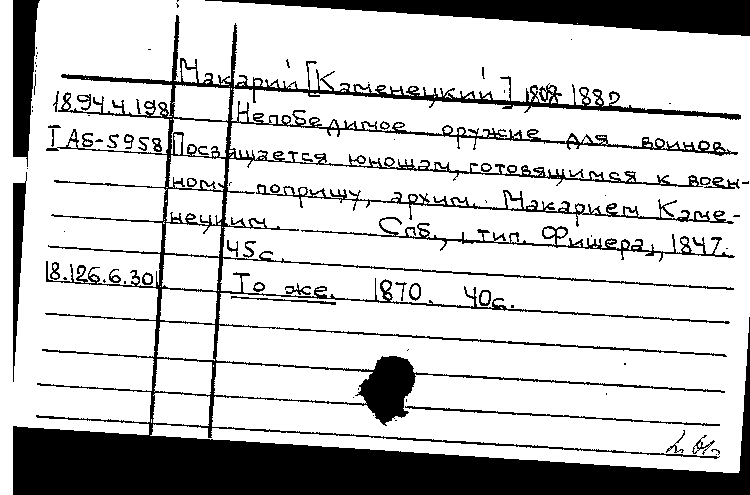 Макарий [Каменецкий], 1808-1880.
18.94.4.198 Непобедимое оружие для воинов.
I AБ-5958 Посвящается юношам, готовящимся к воен-
ному поприщу, архим. Макарием Каме-
нецким. Спб., [тип. Фишера], 1847.
45с.
18.126.6.30 То же. 1870. 40с.